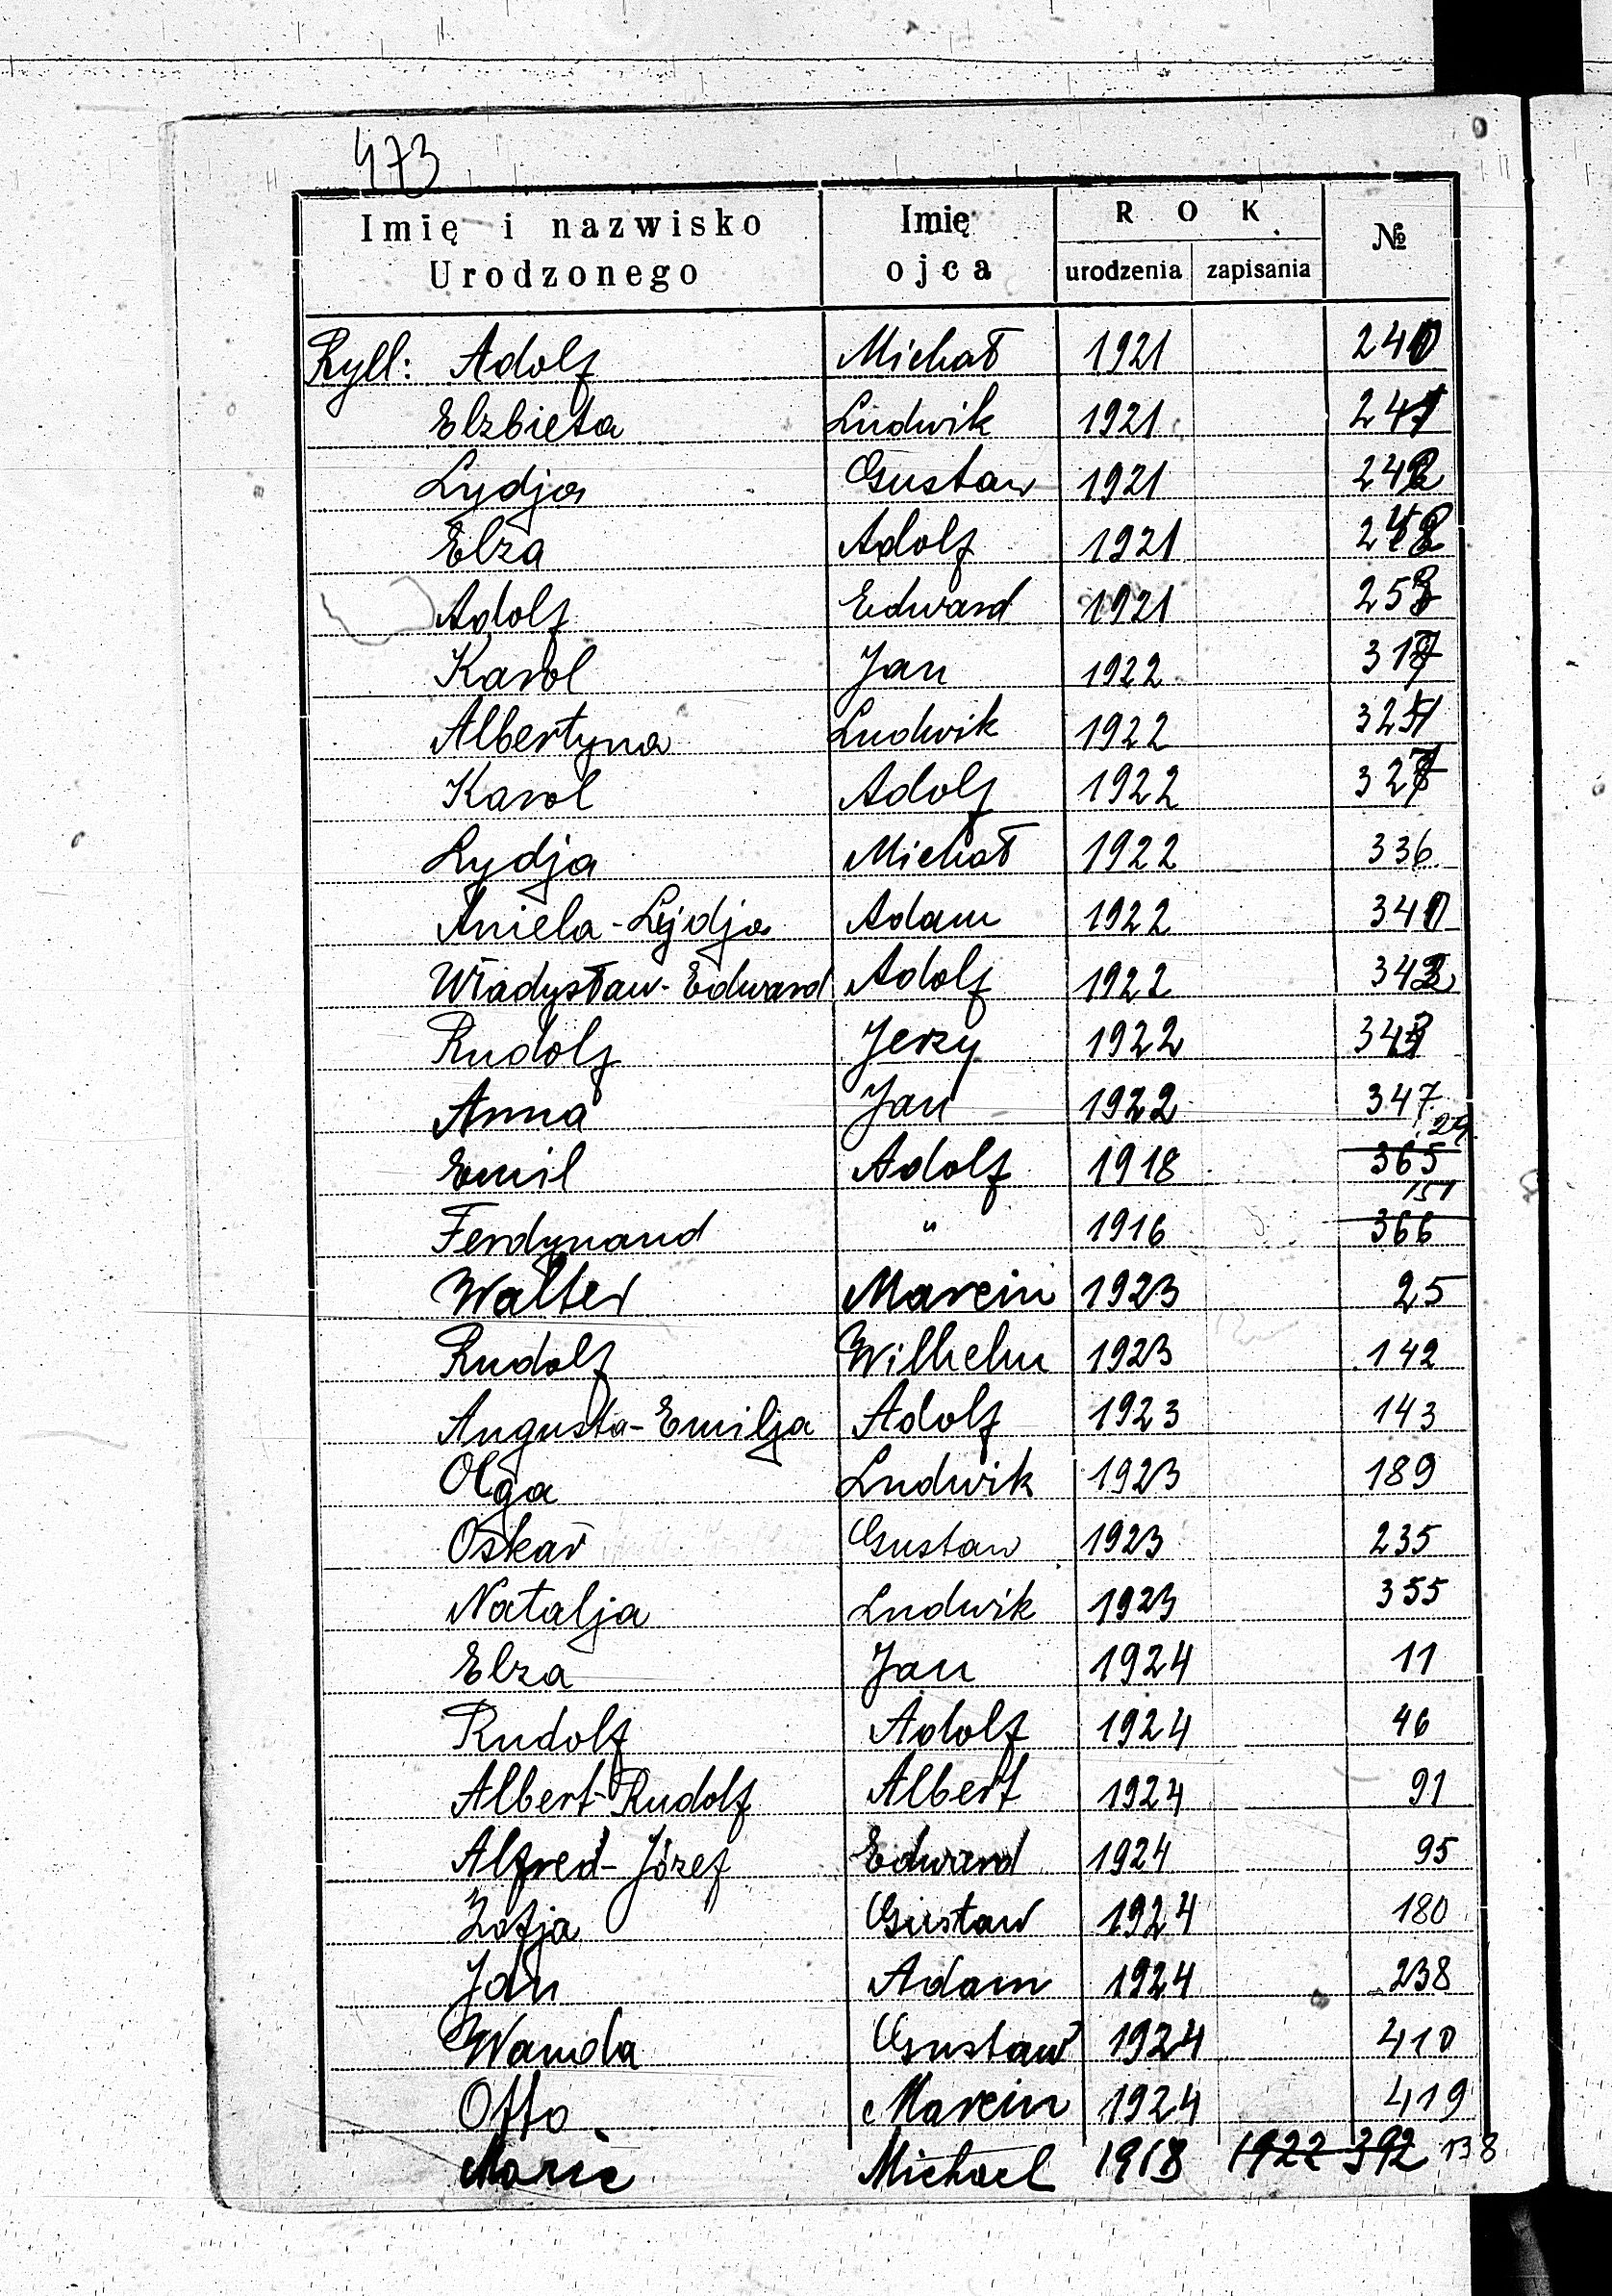 473
Imię i nazwisko Urodzonego Imię ojca ROK urodzenia zapisania №
Ryll: Adolf Michał 1921 240
Elzbieta Ludwik 1921 241
Lydja Gustaw 1921 242
Elza Adolf 1921 248
Adolf Edward 1921 253
Karol Jan 1922 317
Albertyna Ludwik 1922 321
Karol Adolf 1922 327
Lydja Michał 1922 336
Aniela-Lydja Adam 1922 340
Władysław-Edward Adolf 1922 342
Rudolf Jerzy 1922 343
Anna Jan 1922 347
Emil Adolf 1918 365 29
Ferdynand " 1916 366 151
Walter Marcin 1923 25
Rudolf Wilhelm 1923 142
Augusta-Emilja Adolf 1923 143
Olga Ludwik 1923 189
Oskar Gustaw 1923 235
Natalja Ludwik 1923 355
Elza Jan 1924 11
Rudolf Adolf 1924 46
Albert-Rudolf Albert 1924 91
Alfred-Józef Edward 1924 95
Zofja Gustaw 1924 180
Jan Adam 1924 238
Wanda Gustaw 1924 410
Otto Marcin 1924 419
Marie Michael 1918 1922 392 138